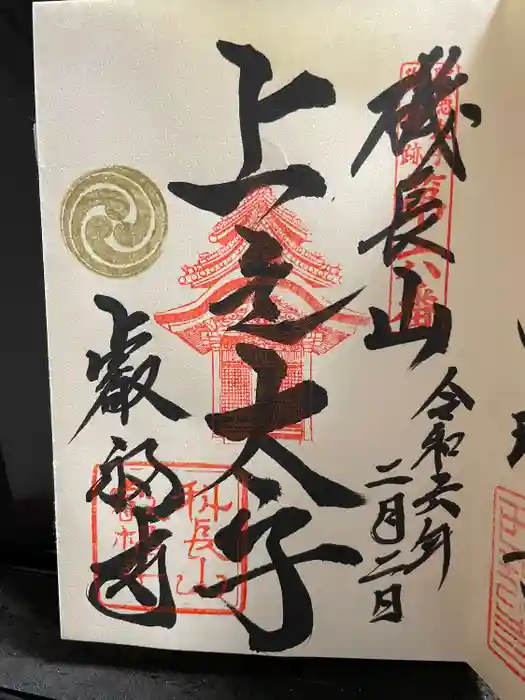 磯長山
令和六年
二月二日
上之太子
叡福寺
科長山